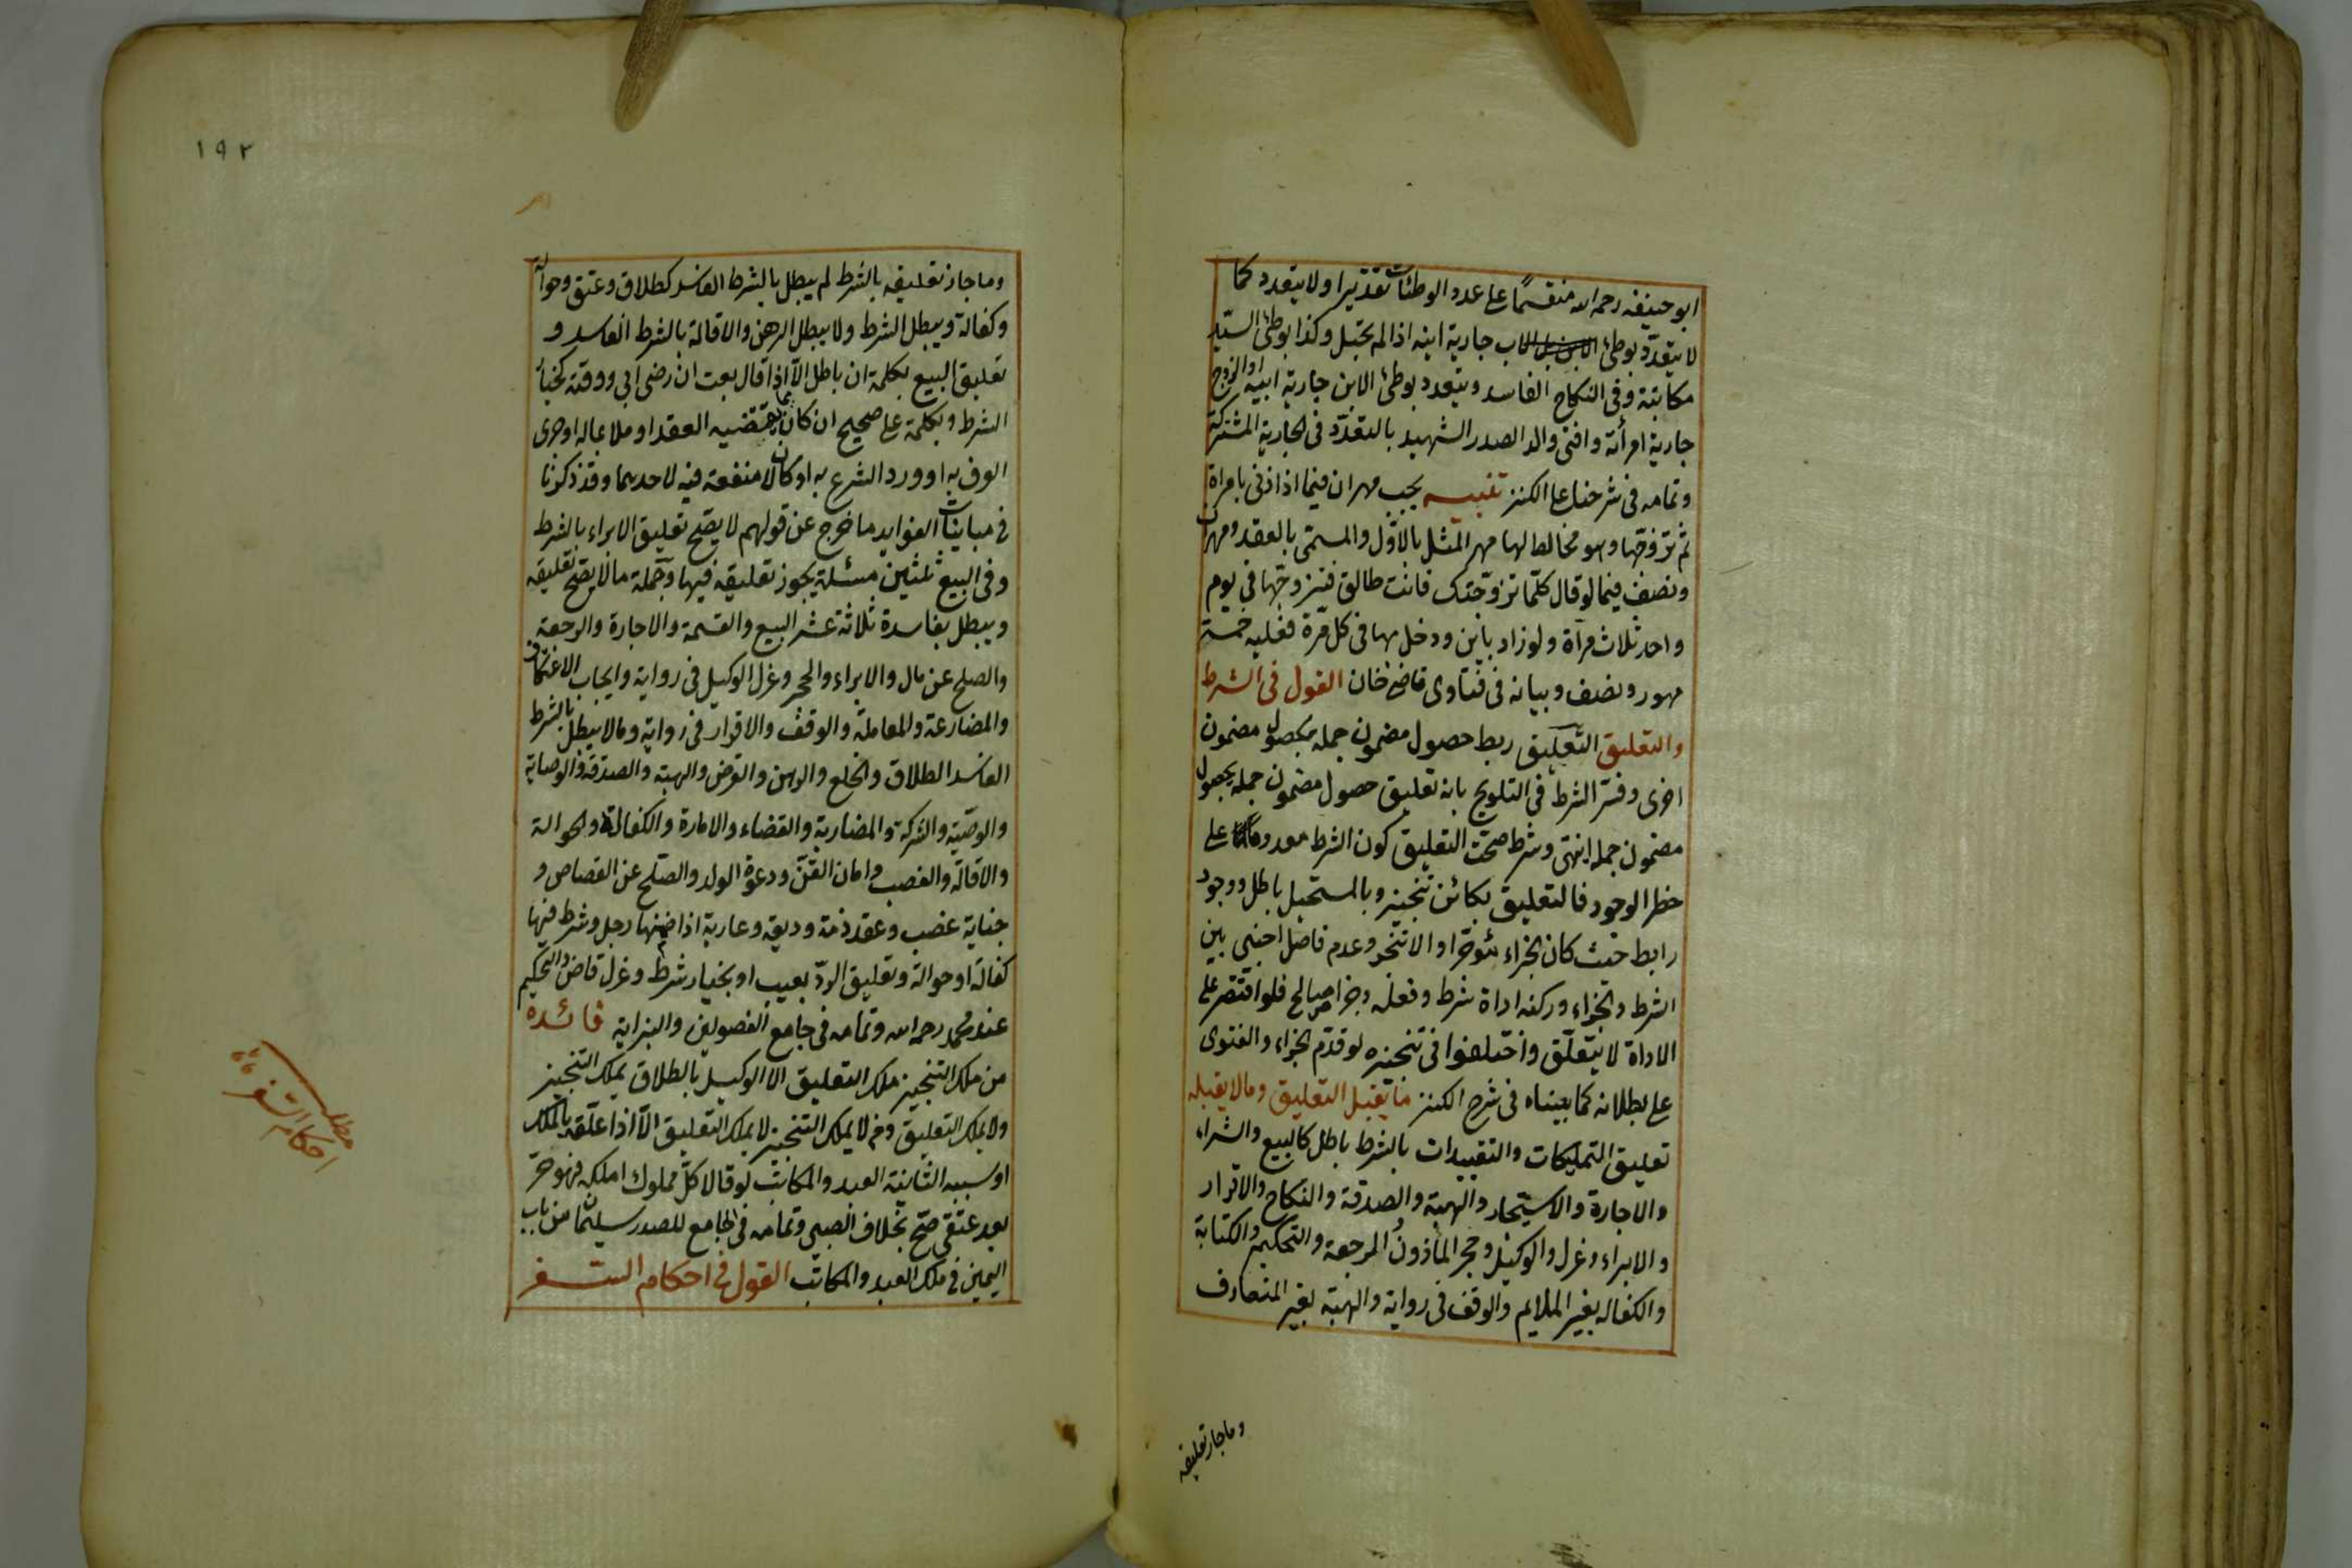 ابو حنيفه رحمه الله منقسمًا على عدد الوطئات تقديرا ولا يتعدد كما
لا يتعدّد بوطئ الاب جارية ابنه اذا لم تحبل وكذا بوطئ السيّد
مكاتبته وفى النكاح الفاسد ويتعدد بوطئ الابن جارية ابيه او الزوج
جارية امرأته وافتى والد الصدر الشهيد بالتعدّد فى الجارية المشتركة
وتمامه فى شرحنا على الكنز تنبيه يجب مهران فيما اذا زنى بامراة
ثم تزوّجها وهو مخالط لها مهر المثل بالاوّل والمسمّى بالعقد ومهران
ونصف فيما لو قال كلّما تزوّجتك فانت طالق فتزوجّها فى يوم
واحد ثلاث مرآة ولو زاد باين ودخل بها فى كل مّرة فعليه خمسة
مهور ونصف وبيانه فى فتاوى قاضى خان القول فى الشرط
والتعليق التّعليق ربط حصول مضمون جمله بحصول مضمون
اخرى وفسّر الشرط فى التلويح بانه تعليق حصول مضمون جمله بحصول
مضمون جمله انتهى وشرط صحّت التعليق كون الشرط معدوما على
خطر الوجود فالتعليق بكائن تنجيز وبالمستحيل باطل ووجود
رابط حيث كان الجزاء مؤخّرا والا تنجز وعدم فاصل اجنبى بين
الشرط والجزاء وركنه اداة شرط وفعله وجزا صالح فلو اقتصر على
الاداة لا يتعلّق واختلفوا فى تنجيزه لو قدّم الجزاء والفتوى
على بطلانه كما بيناه فى شرح الكنز ما يقبل التعليق ومالا يقبله
تعليق التمليكات والتقييدات بالشرط باطل كالبيع والشراء
والاجارة والاستيجار والهبة والصدقة والنكاح والاقرار
والابراء وعزل والوكيل وحجر الماذون المرجعة والتحكيم والكتابة
والكفاله بغير الملايم والوقف فى رواية والهبة بغير المتعارف
وما جاز تعليقه
١٩٢
وما جاز تعليقه بالشرط لم يبطل بالشرط الفاسد كطلاق وعتق وحوالة
وكفالة ويبطل الشرط ولا يبطل الرهن والاقالة بالشرط الفاسد و
تعليق البيع بكلمة ان باطل الاّ اذا قال بعت ان رضى ابى ووقته كخيار
الشرط وبكلمة على صحيح ان كان مما يقتضيه العقد او ملائما له او جرى
العرف به او ورد الشرع به او كان لا منفعة فيه لاحدهما وقد ذكرنا
فى مباينات الفوايد ما خرج عن قولهم لا يصّح تعليق الابراء بالشرط
وفى البيع ثلثين مسئلة يجوز تعليقه فيها وجملة مالا يصّح تعليقه
ويبطل بفاسدة ثلاثة عشر البيع والقسمة والاجارة والرجعة
والصلح عن مال والابراء والحجر وعزل الوكيل فى رواية وايجاب الاعتكاف
والمضارعة والمعاملة والوقف والاقرار فى رواية ومالا يبطل بالشرط
الفاسد الطلاق والخلع والرهن والقرض والهبة والصدقة والوصاية
والوصيّة والشركة والمضاربة والقضاء والامارة والكفالة والحوالة
والاقالة والغصب وامان القنّ ودعوة الولد والصلح عن القصاص و
جناية غصب وعقد ذمة وديعة وعارية اذا ضمنها رجل وشرط فيها
كفالة او حوالة وتعليق الردّ بعيب او بخيار شرط وعزل قاض والتحكيم
عند محمد رحمه الله وتمامه فى جامع الفصولين والبزازية فائده
من ملك التنجيز ملك التعليق الا الوكيل بالطلاق يملك التنجيز
ولا يملك التعليق ومن لا يملك التنجيز لا يملك التعليق الاّ اذا علّقه بالملك
او سببه الثانية العبد والمكاتب لو قالا كلّ مملوك املكه فهو حرّ
بعد عتقى صّح بخلاف الصبى وتمامه فى الجامع للصدر سليمان من باب
اليمين فى ملك العبد والمكاتب القول فى احكام السفر
مطلب
احكام السّفر